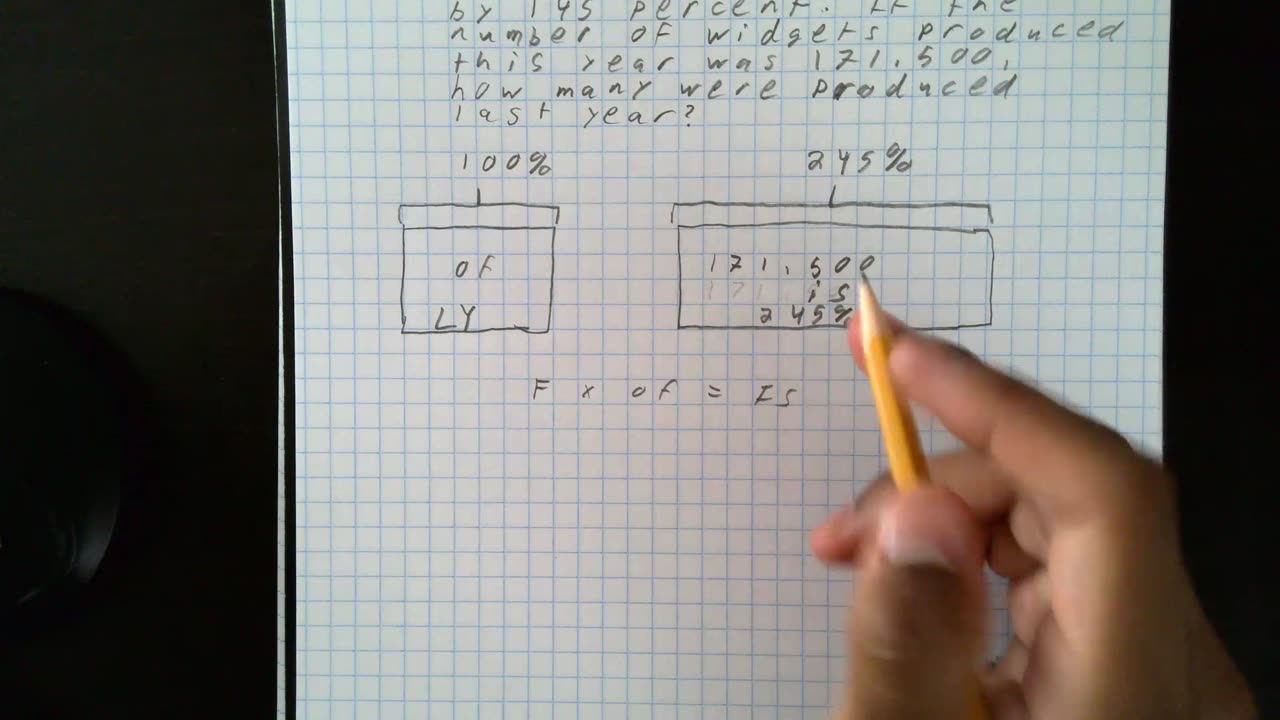 by 145 percent. If the
number of widgets produced
this year was 171,500,
how many were produced
last year?
100% 245%
of 171,500
171 is
LY 245%
F x of = Is